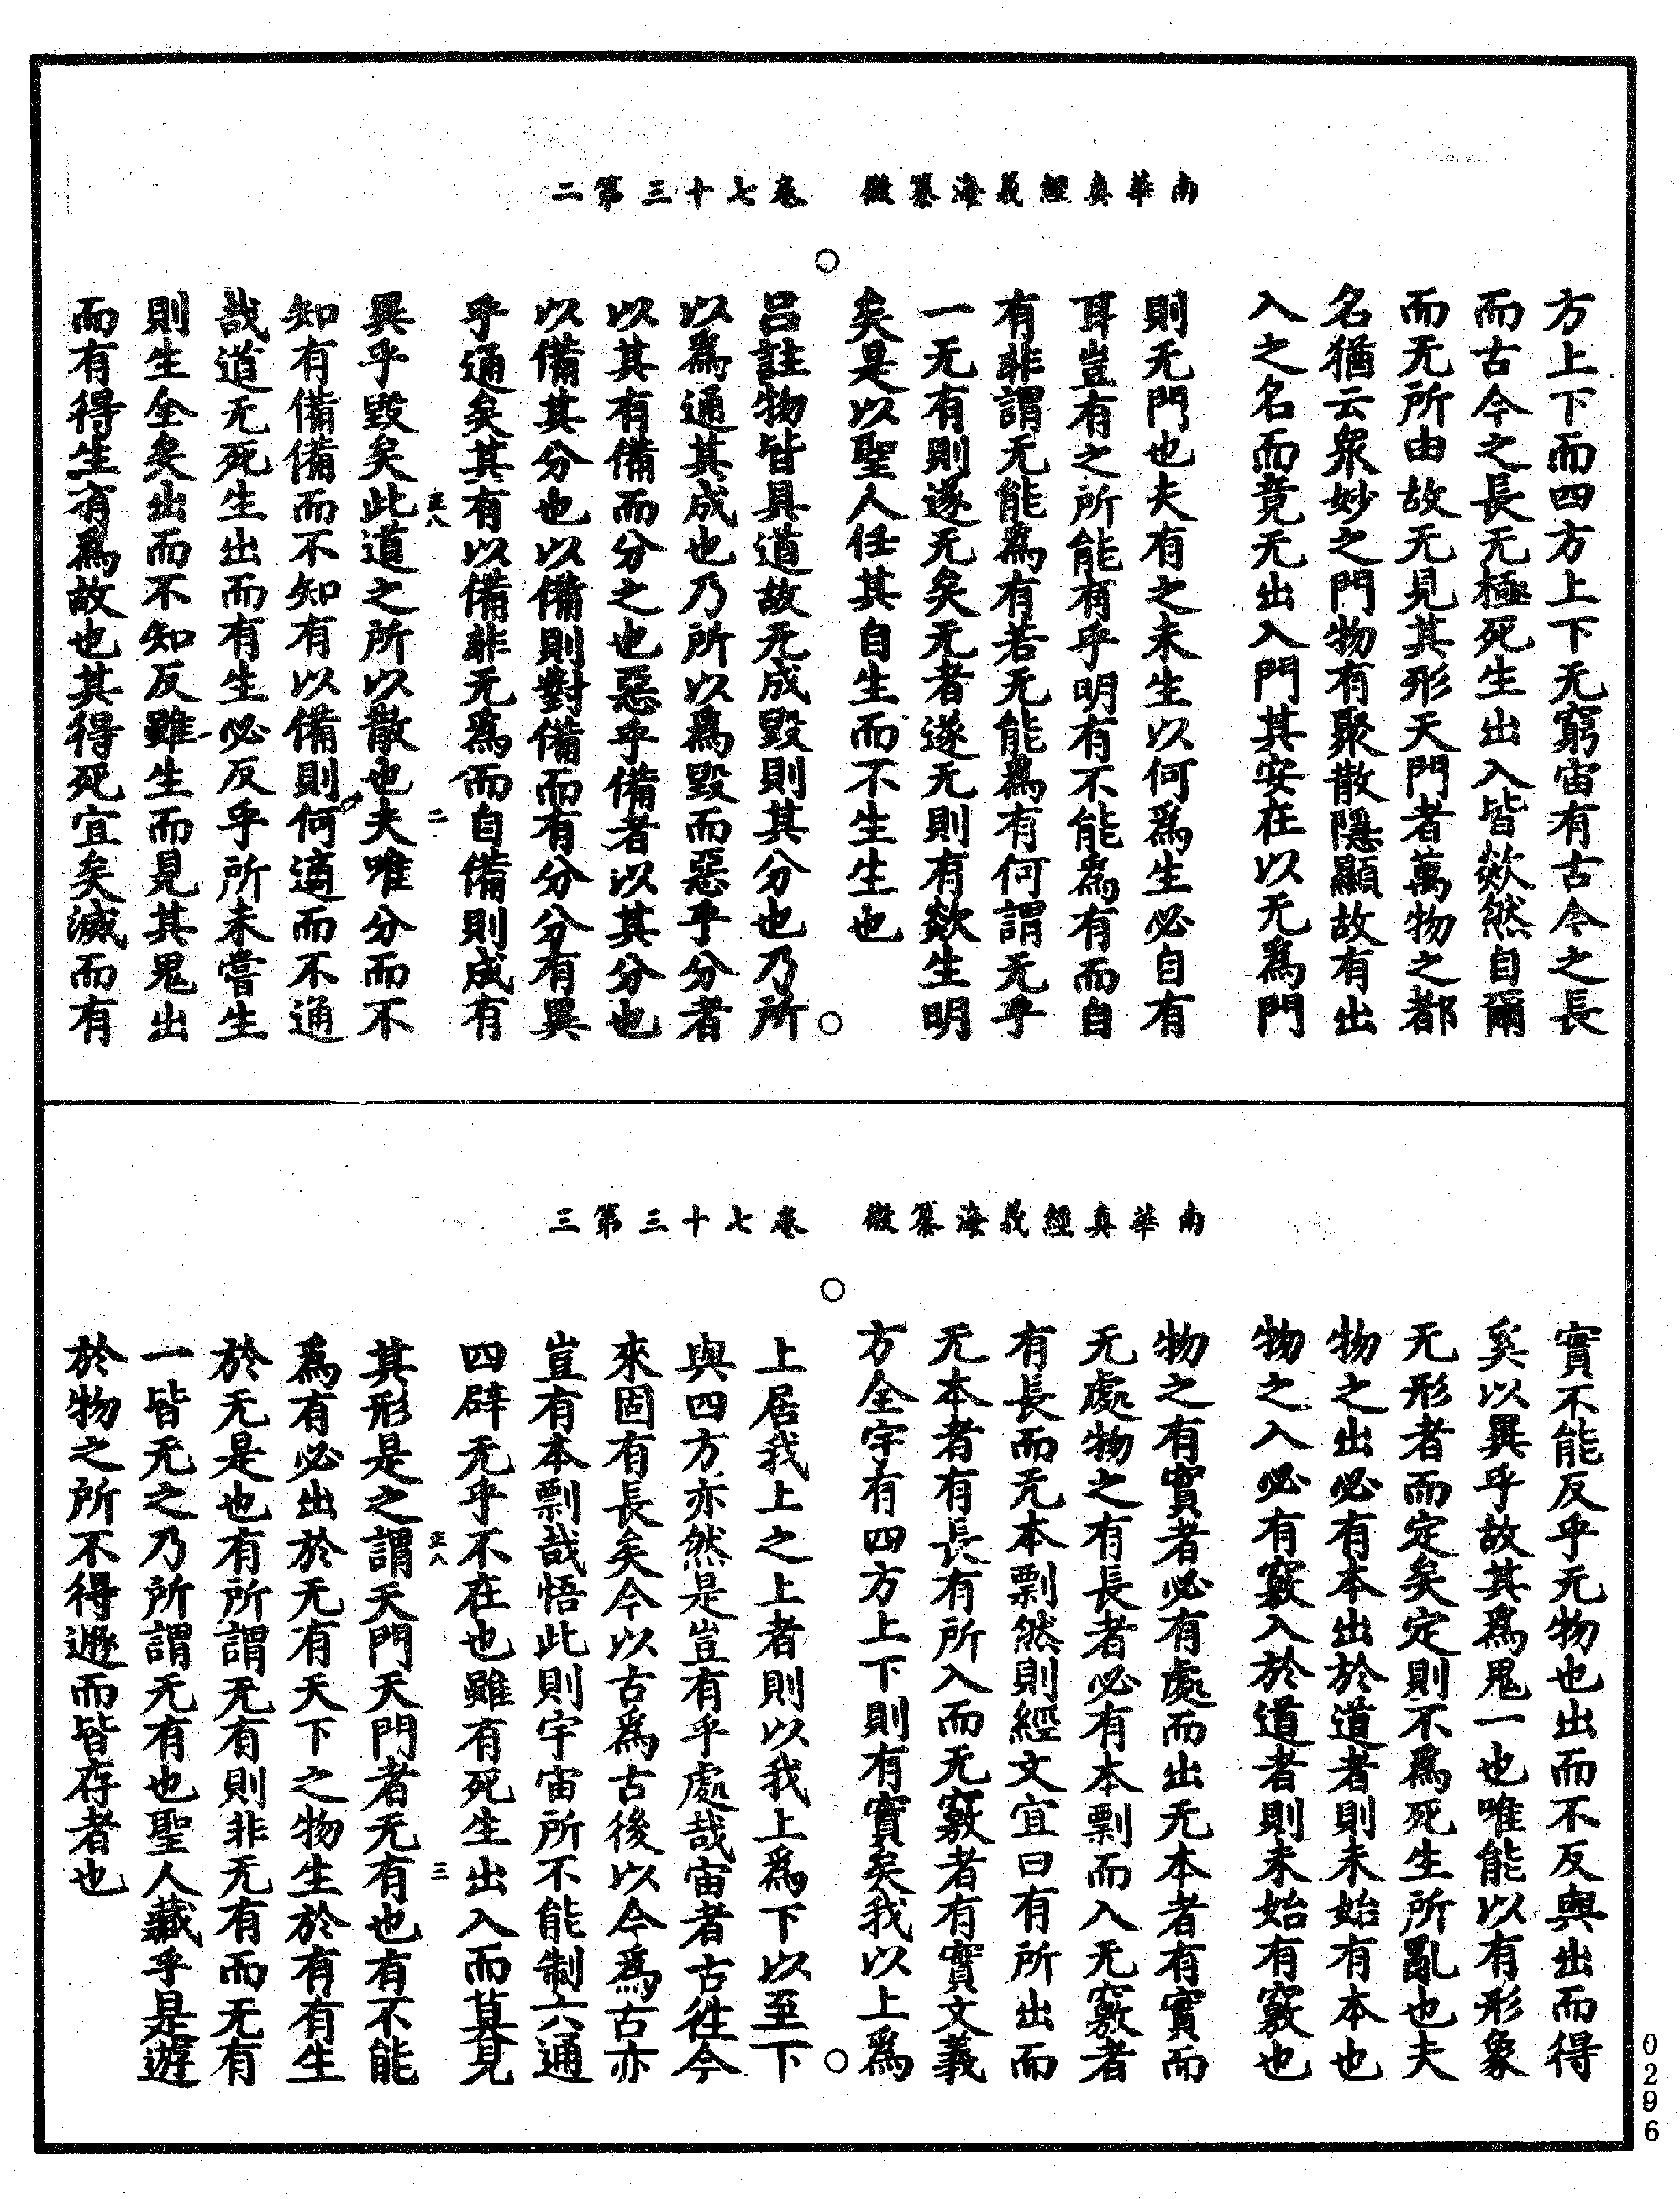 南華真經義海纂微　卷七十三第二
方上下而四方上下无窮宙有古今之長
而古今之長无極死生出入皆欻然自爾
而无所由故无見其形天門者萬物之都
名猶云衆妙之門物有聚散隱顯故有出
入之名而竟无出入門其安在以无為門
則无門也夫有之未生以何為生必自有
耳豈有之所能有乎明有不能為有而自
有非謂无能為有若无能為有何謂无乎
一无有則遂无矣无者遂无則有欻生明
矣是以聖人任其自生而不生生也
呂註物皆具道故无成毀則其分也乃所
以為通其成也乃所以為毀而惡乎分者
以其有備而分之也惡乎備者以其分也
以備其分也以備則對備而有分分有異
乎通矣其有以備非无為而自備則成有
正八　二
異乎毀矣此道之所以散也夫唯分而不
知有備備而不知有以備則何適而不通
哉道无死生出而有生必反乎所未嘗生
則生全矣出而不知反雖生而見其鬼出
而有得生有為故也其得死宜矣滅而有
南華真經義海纂微　卷七十三第三
實不能反乎无物也出而不反與出而得
奚以異乎故其為鬼一也唯能以有形象
无形者而定矣定則不為死生所亂也夫
物之出必有本出於道者則未始有本也
物之入必有竅入於道者則未始有竅也
物之有實者必有處而出无本者有實而
无處物之有長者必有本剽而入无竅者
有長而无本剽然則經文宜曰有所出而
无本者有長有所入而无竅者有實文義
方全宇有四方上下則有實矣我以上為
上居我上之上者則以我上為下以至下
與四方亦然是豈有乎處哉宙者古往今
來固有長矣今以古為古後以今為古亦
豈有本剽哉悟此則宇宙所不能制六通
四辟无乎不在也雖有死生出入而莫見
正八　三
其形是之謂天門天門者无有也有不能
為有必出於无有天下之物生於有有生
於无是也有所謂无有則非无有而无有
一皆无之乃所謂无有也聖人藏乎是遊
於物之所不得遯而皆存者也
0296